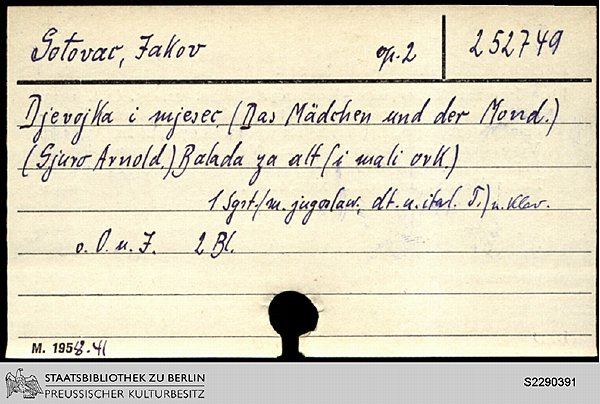 Gotovac, Jakov op. 2 252749
Djevojka i mjesec (Das Mädchen und der Mond.)
(Gjuro Arnold.) Balada za alt (i mali ork)
1 Sgst. (m. jugoslaw., dt. u. ital. T.) u. Klav.
o. O. u. J. 2 Bl.
M. 1958. 41
STAATSBIBLIOTHEK ZU BERLIN
PREUSSISCHER KULTURBESITZ
S2290391